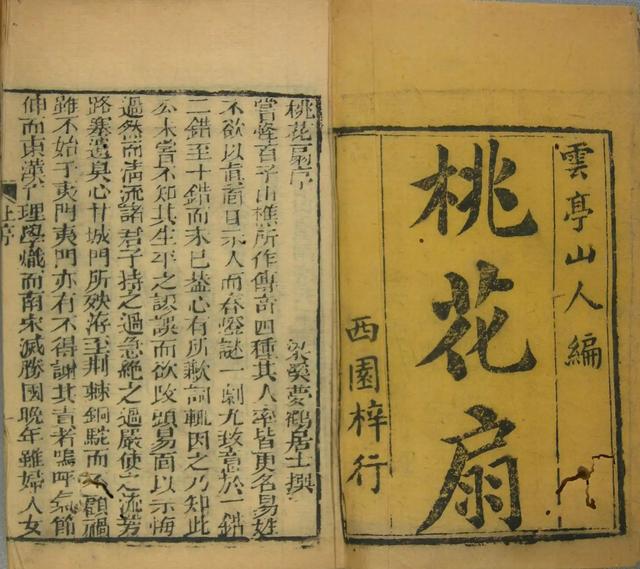 雲亭山人編
桃花扇
西園梓行
桃花扇序
梁溪夢鶴居士撰
嘗怪百子山樵所作傳奇四種其人率皆更名易姓
不欲以眞面目示人而春燈謎一劇尤致意於一錯
二錯至十錯而未已蓋心有所歉詞輒因之乃知此
公未嘗不知其生平之謬誤而欲改頭易面以示悔
過然而清流諸君子持之過急絕之過嚴使之流芳
路塞遺臭心甘城門所殃洊至荆棘銅駝而不顧禍
雖不始于夷門夷門亦有不得謝其責者嗚呼氣節
伸而東漢亡理學熾而南宋滅勝國晚年雖婦人女